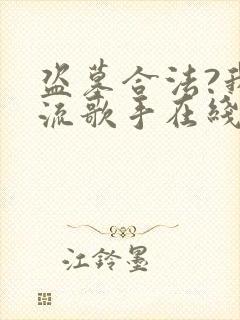 盗墓合法?我
流歌手在线
江铃墨